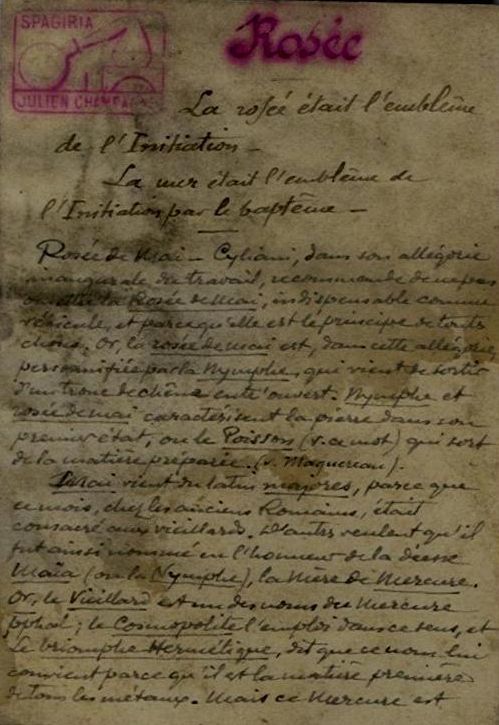 SPAGIRIA
JULIEN CHAMPAGNE
Rosée
La rosée était l'emblême
de l'Initiation —
La mer était l'emblême de
l'Initiation par le baptême —
Rosée de Mai — Cyliani, dans son allégorie
inaugurale du travail, recommande de ne pas
oublier la Rosée de Mai, indispensable comme
véhicule, et parce qu'elle est le principe de toute
chose. Or, la rosée de mai est, dans cette allégorie,
personnifiée par la Nymphe, qui vient de sortir
d'un tronc de chêne entr'ouvert. Nymphe et
rosée de mai caractérisent la pierre dans son
premier état, ou le Poisson (v. ce mot) qui sort
de la matière préparée. (v. Maquereau).
Mai vient du latin majores, parce que
ce mois, chez les anciens Romains, était
consacré aux vieillards. D'autres veulent qu'il
fut ainsi nommé en l'honneur de la déesse
Maïa (ou la Nymphe), la Mère de Mercure.
Or, le Vieillard est un des noms du Mercure
pphal; le Cosmopolite l'emploi dans ce sens, et
le triomphe Hermétique, dit que ce nom lui
convient parce qu'il est la matière première
de tous les métaux. Mais ce Mercure est